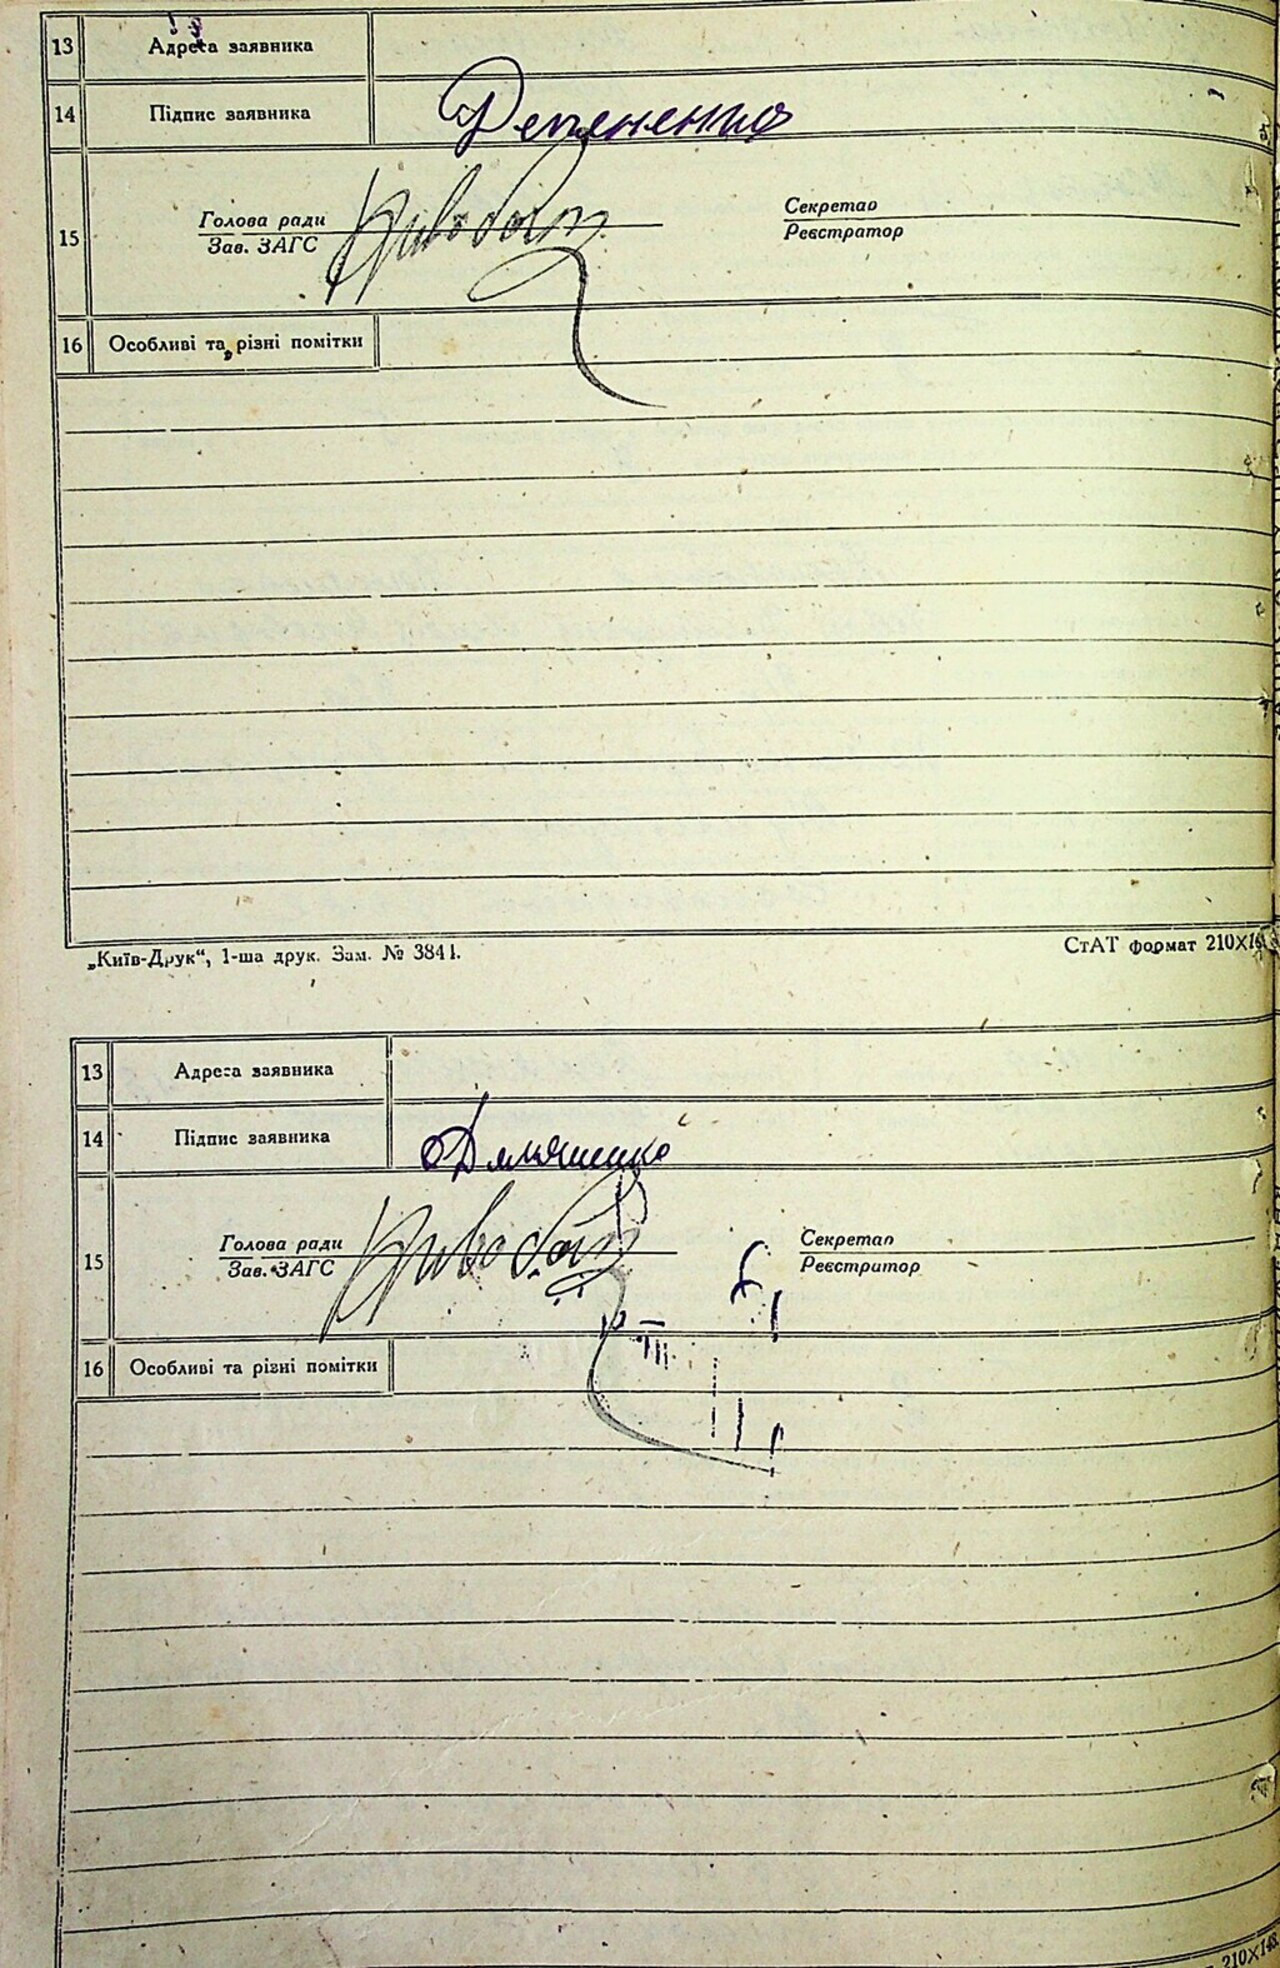 13 Адреса заявника
14 Підпис заявника
15 Голова ради Секретар
Зав. ЗАГС Реєстратор
16 Особливі та різні помітки
„Київ-Друк“, 1-ша друк. Зам. № 3841. СтАТ формат 210×148
13 Адреса заявника
14 Підпис заявника
15 Голова ради Секретар
Зав. ЗАГС Реєстратор
16 Особливі та різні помітки
210×148